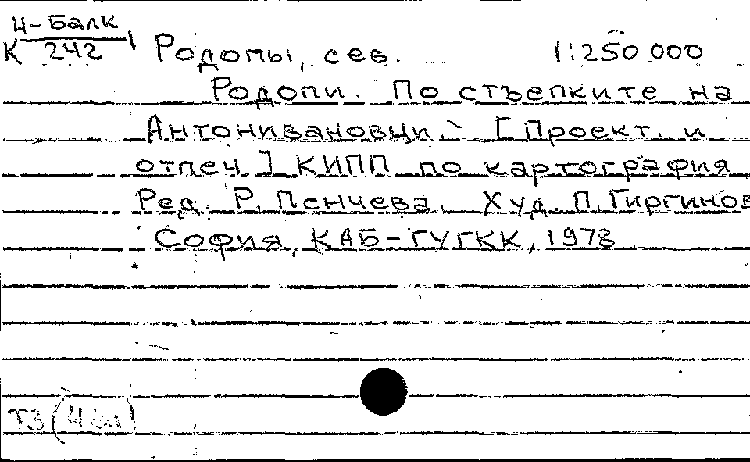 Ц-Балк
К 242 Родопы, сев. 1:250 000
Родопи. По стъпките на
Антонивановци. [Проект. и
отпеч.] КИПП по картография
Ред. Р. Пенчева. Худ. П. Гиргинов
София, КАБ-ГУГКК, 1978
ТЗ